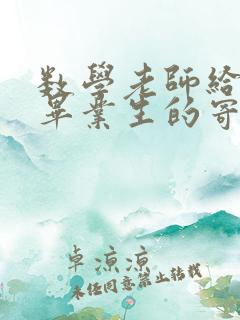 数學老師給
畢業生的寄
卓涼涼
未经同意禁止转载